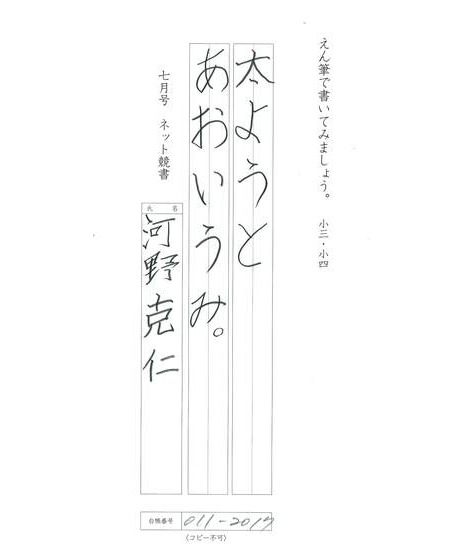 えん筆で書いてみましょう。 小三・小四
太ようと
あおいうみ。
七月号 ネット競書
氏名
河野克仁
台帳番号 011-2017
(コピー不可)